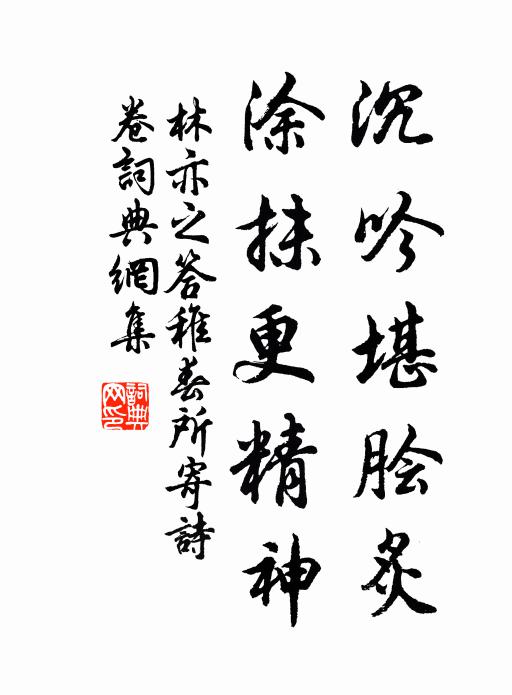 沉吟堪脍炙
涂抹更精神
林亦之答稚春所寄詩
卷詞典網集
詞典网印